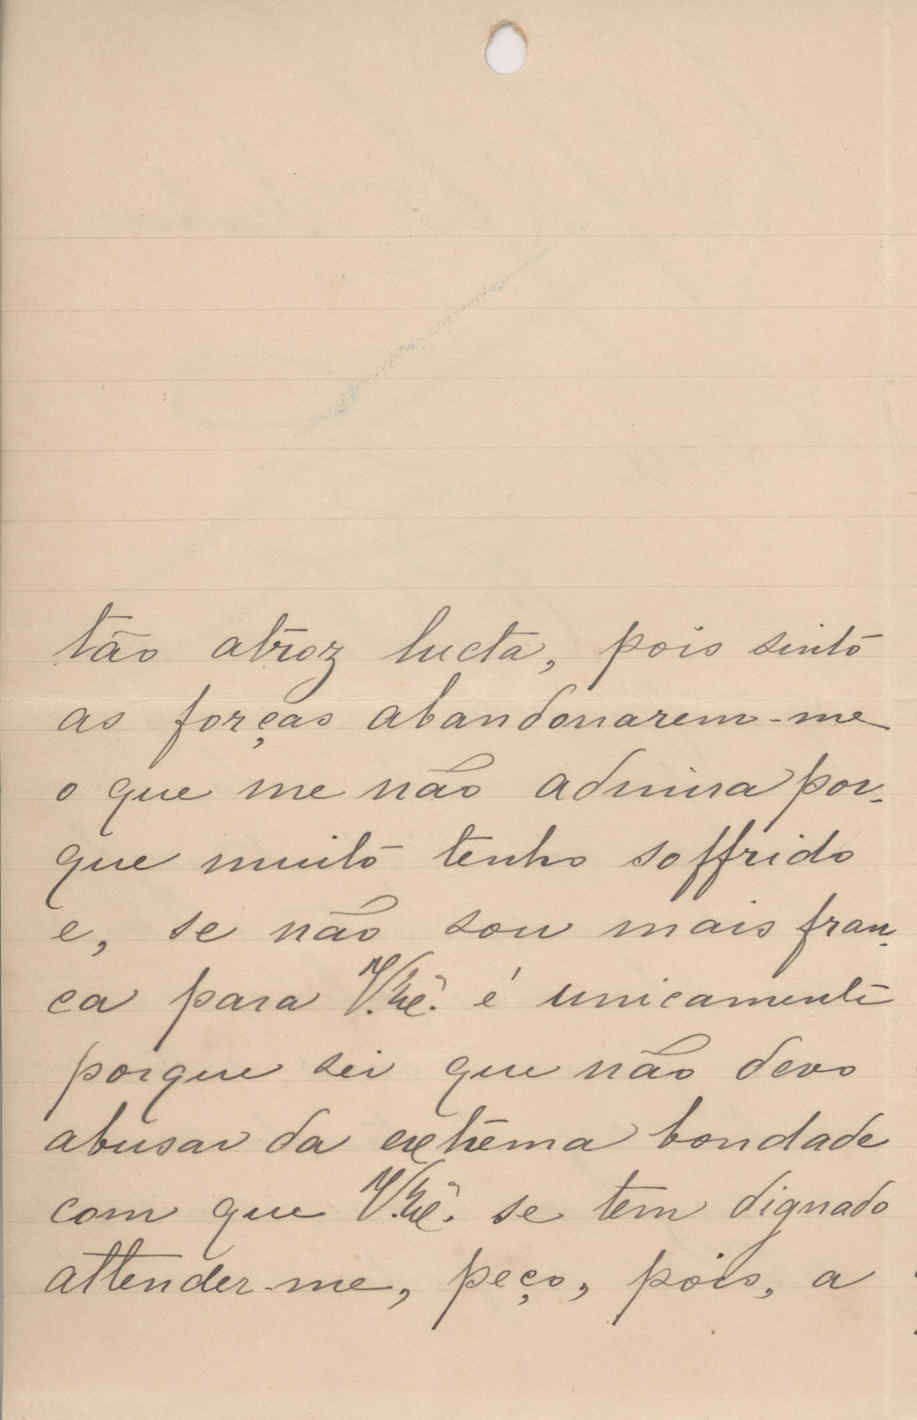 tão atroz lucta, pois sinto
as forças abandonarem-me
o que me não admira por-
que muito tenho soffrido
e, se não sou mais fran-
ca para V. Exc.ª é unicamente
porque sei que não devo
abusar da extrema bondade
com que V. Exc.ª se tem dignado
attender-me, peço, pois, a